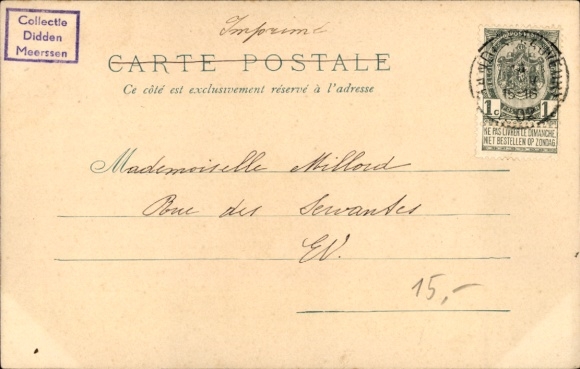 Collectie
Didden
Meerssen
Imprimé
CARTE POSTALE
Ce côté est exclusivement réservé à l'adresse
1c 1
NE PAS LIVRER LE DIMANCHE
NIET BESTELLEN OP ZONDAG
02
Mademoiselle Millord
Rue des Servantes
EV.
15,-